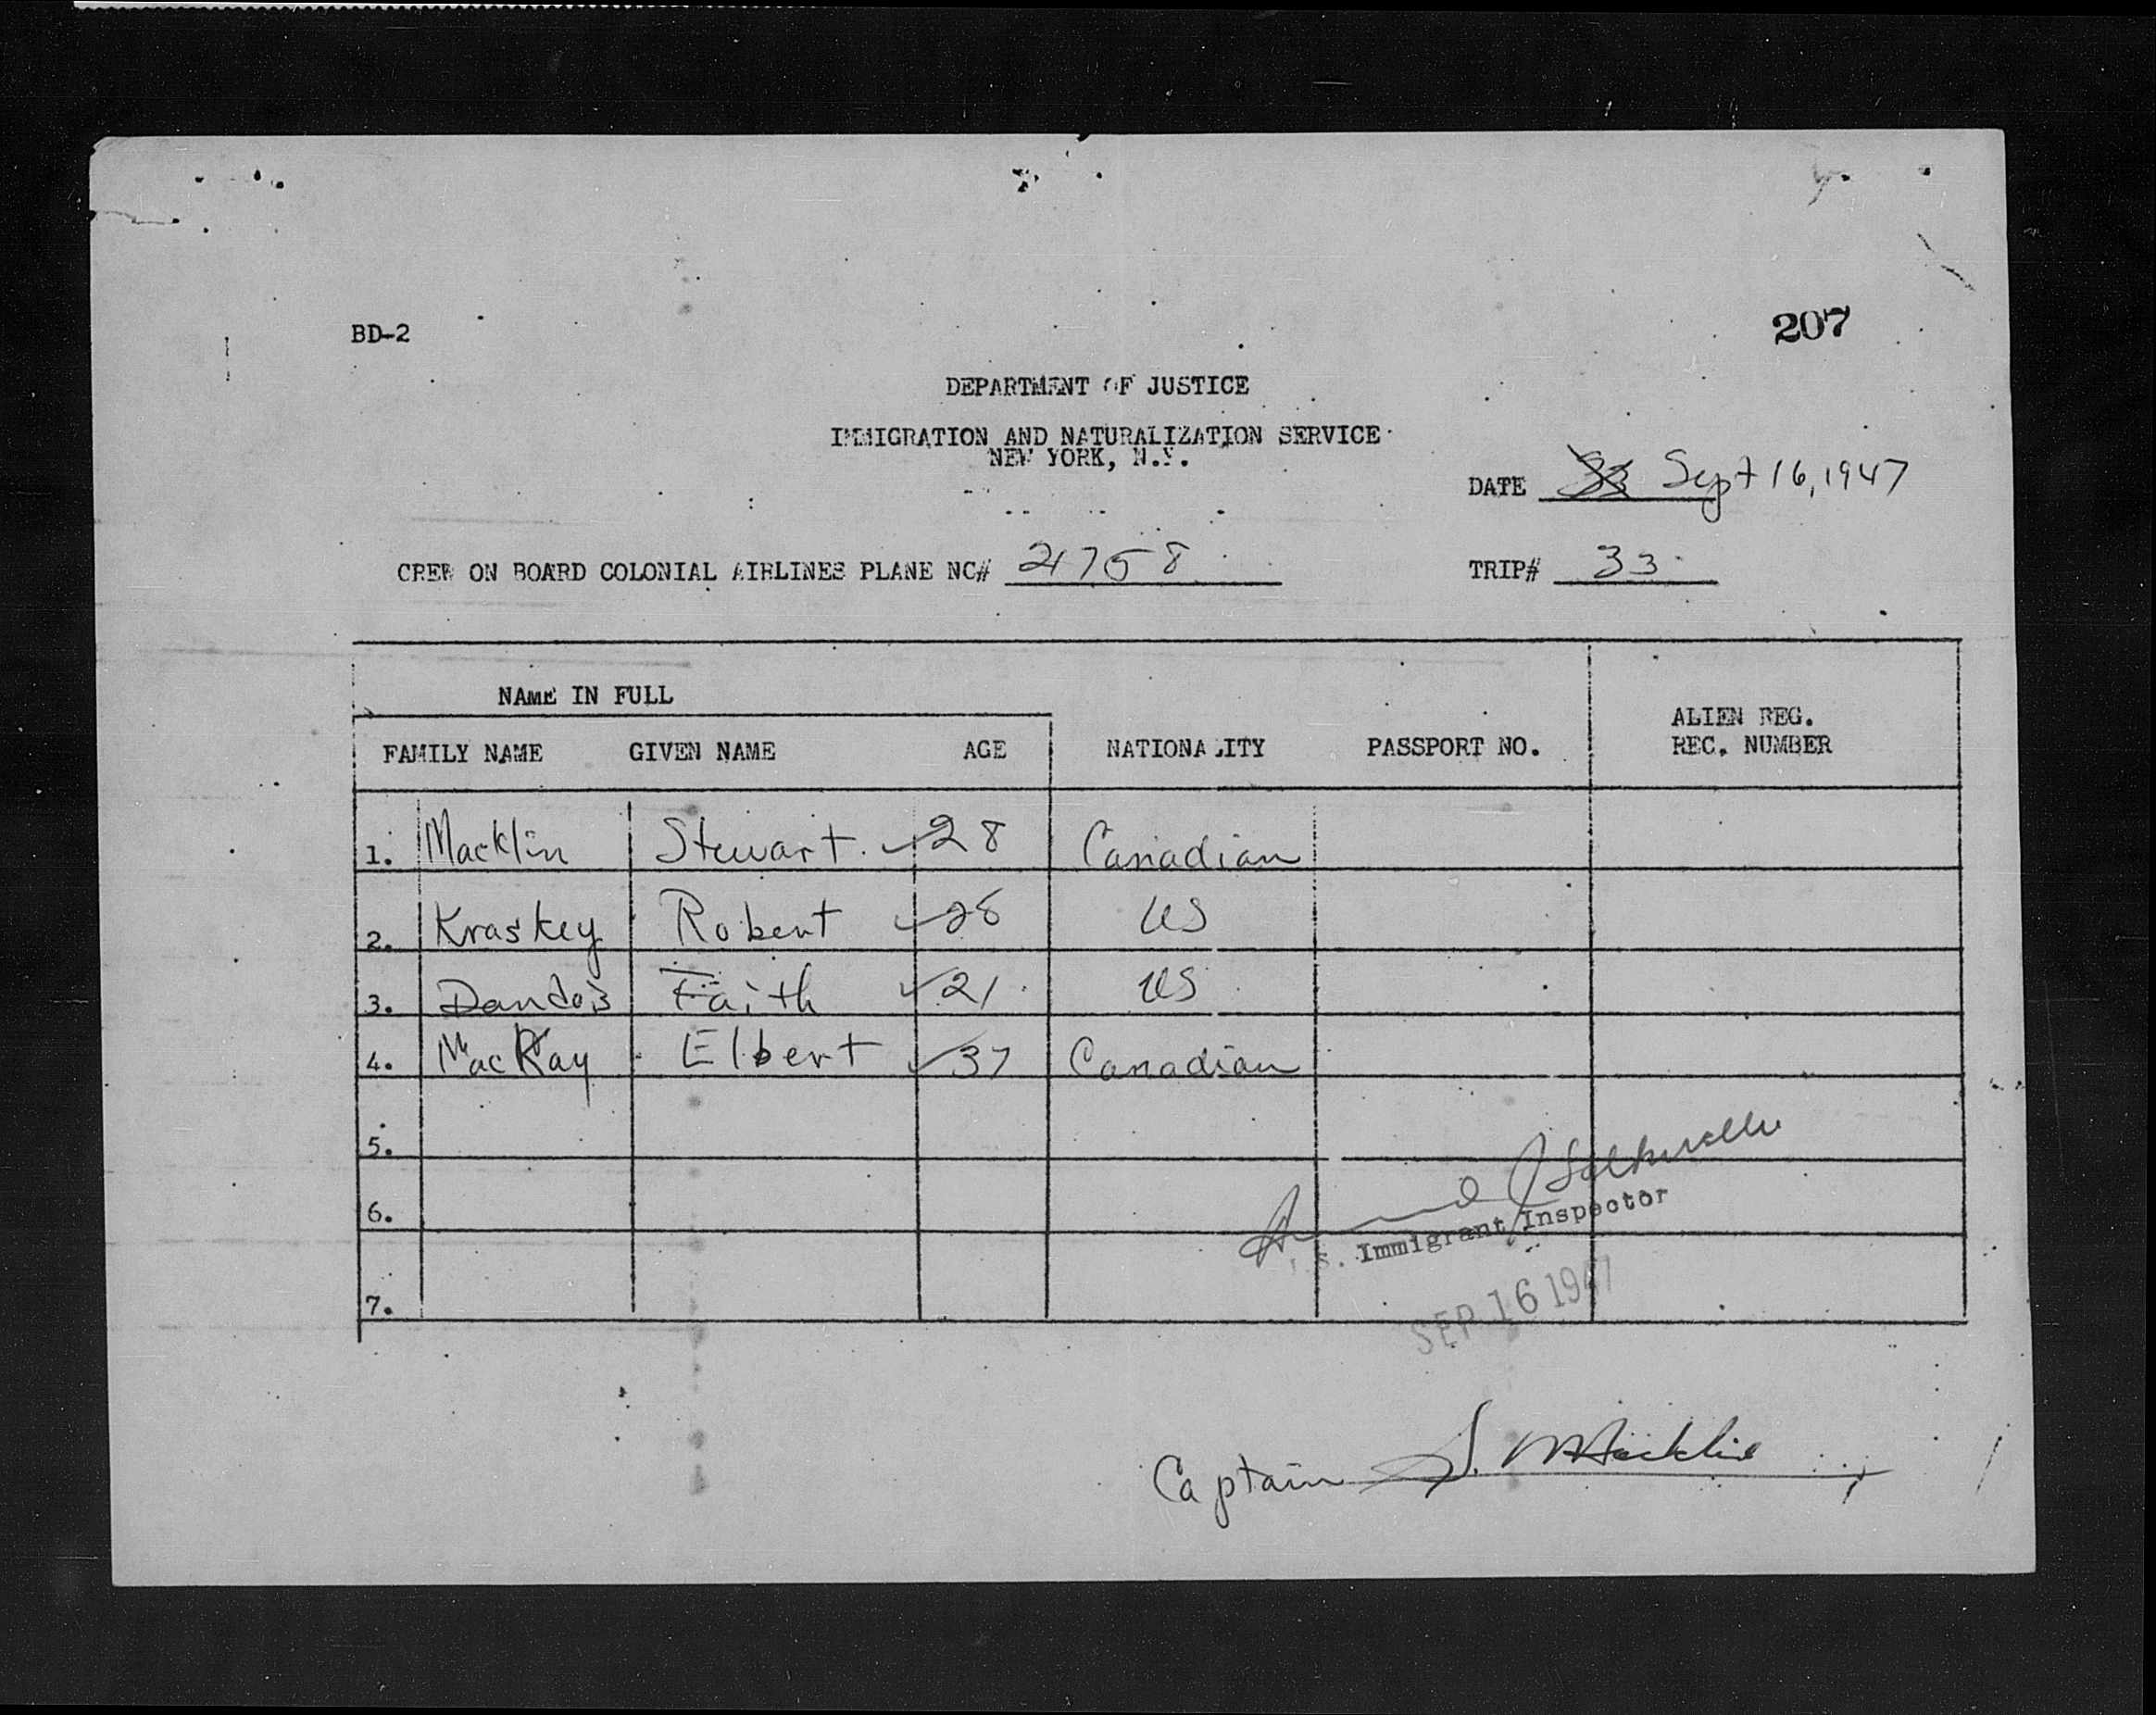 BD-2
207
DEPARTMENT OF JUSTICE
IMMIGRATION AND NATURALIZATION SERVICE
NEW YORK, N.Y.
DATE 33 Sept 16, 1947
CREW ON BOARD COLONIAL AIRLINES PLANE NC# 21758
TRIP# 33
NAME IN FULL
FAMILY NAME GIVEN NAME AGE NATIONALITY PASSPORT NO. ALIEN REG. REC. NUMBER
1. Macklin Stewart 28 Canadian
2. Kraskey Robert 28 US
3. Faith 21 US
4. MacKay Elbert 37 Canadian
5.
6.
7.
Immigrant Inspector
SEP 16 1947
Captain S. Macklin